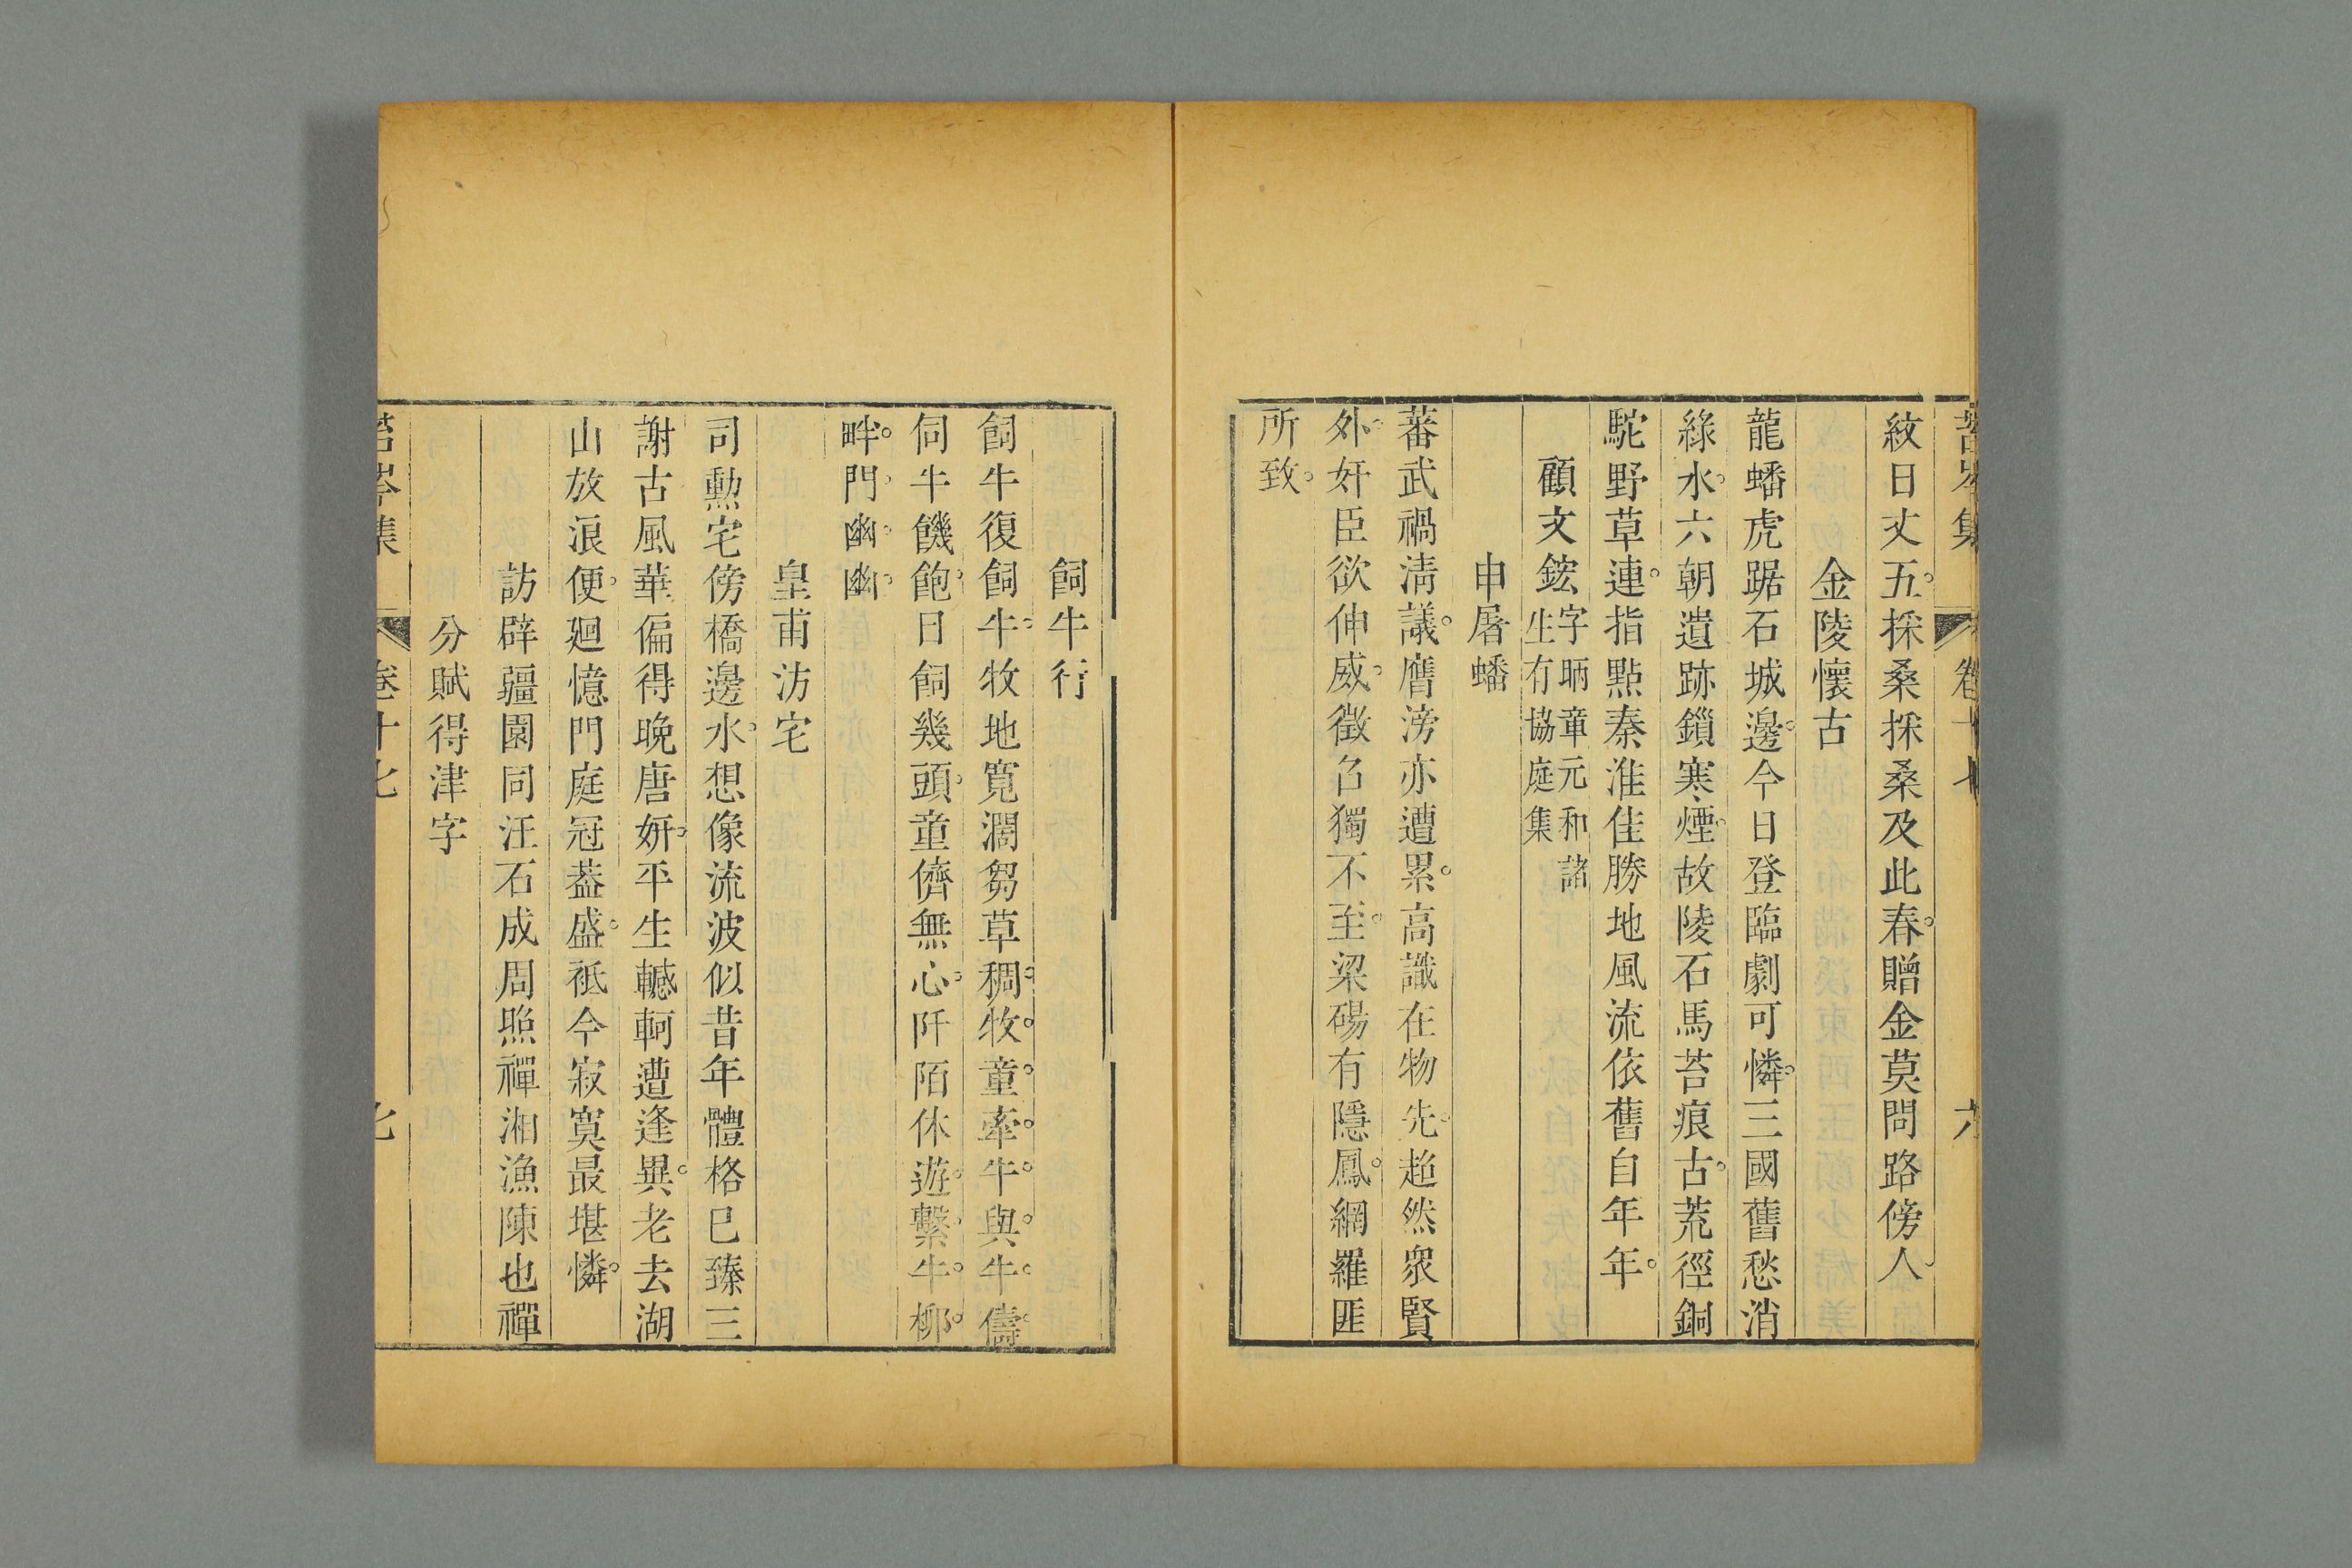 苔岑集 卷十七 六
紋日丈五採桑採桑及此春贈金莫問路傍人
金陵懷古
龍蟠虎踞石城邊今日登臨劇可憐三國舊愁消
綠水六朝遺跡鎖寒煙故陵石馬苔痕古荒徑銅
駝野草連指點秦淮佳勝地風流依舊自年年
顧文鋐字昞童元和諸生有協庭集
申屠蟠
蕃武禍淸議膺滂亦遭累高識在物先超然衆賢
外奸臣欲伸威徵召獨不至梁碭有隱鳳網羅匪
所致
飼牛行
飼牛復飼牛牧地寬濶芻草稠牧童牽牛與牛儔
伺牛饑飽日飼幾頭童儕無心阡陌休遊繫牛柳
畔門幽幽
皇甫汸宅
司勳宅傍橋邊水想像流波似昔年體格已臻三
謝古風華偏得晚唐妍平生轗軻遭逢異老去湖
山放浪便廻憶門庭冠葢盛祗今寂寞最堪憐
訪辟疆園同汪石成周煦禪湘漁陳也禪
分賦得津字
苔岑集 卷十七 七